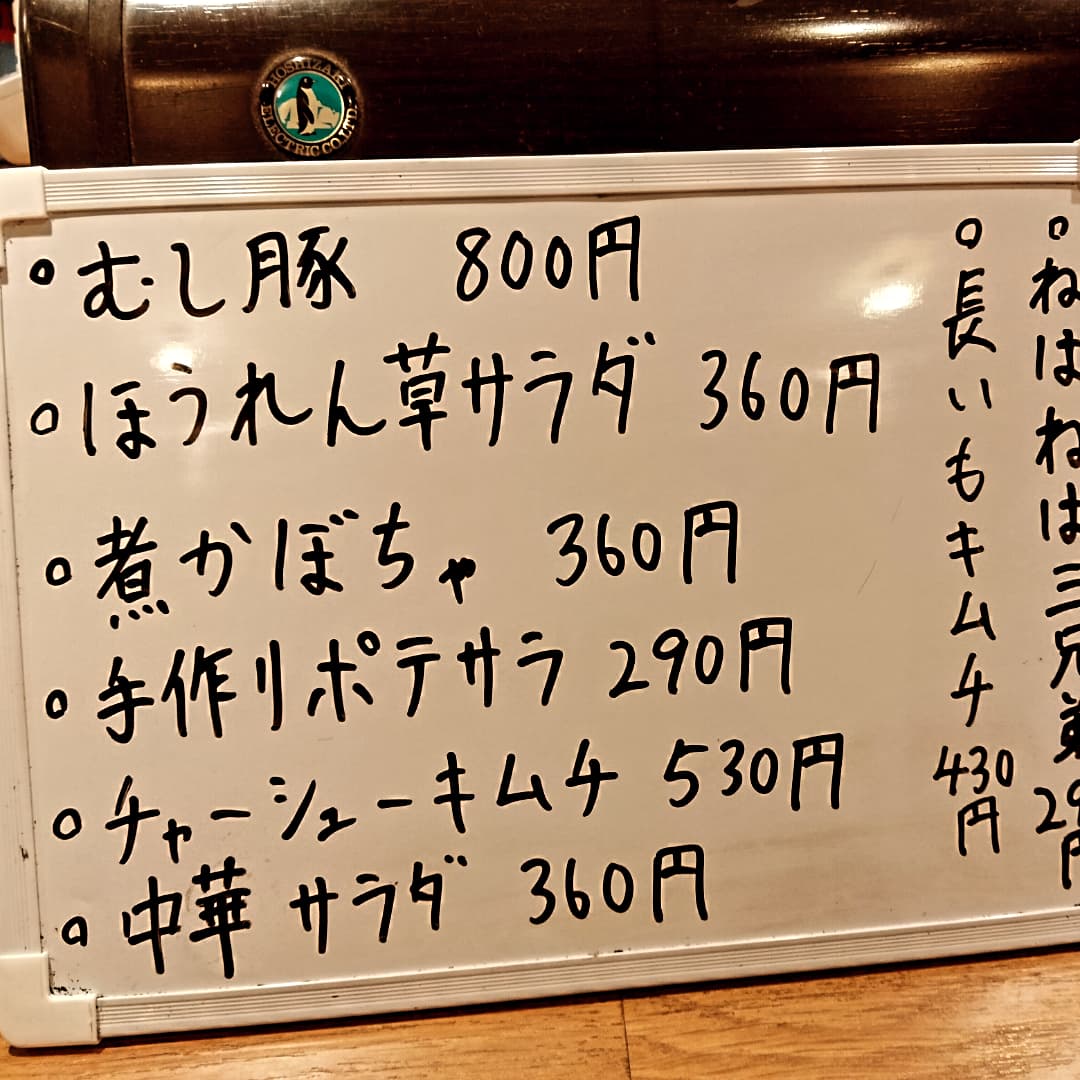 HOSHIZAKI ELECTRIC CO.LTD.
むし豚 800円
ほうれん草サラダ 360円
煮かぼちゃ 360円
手作りポテサラ 290円
チャーシューキムチ 530円
中華サラダ 360円
長いもキムチ 430円
ねばねば三兄弟